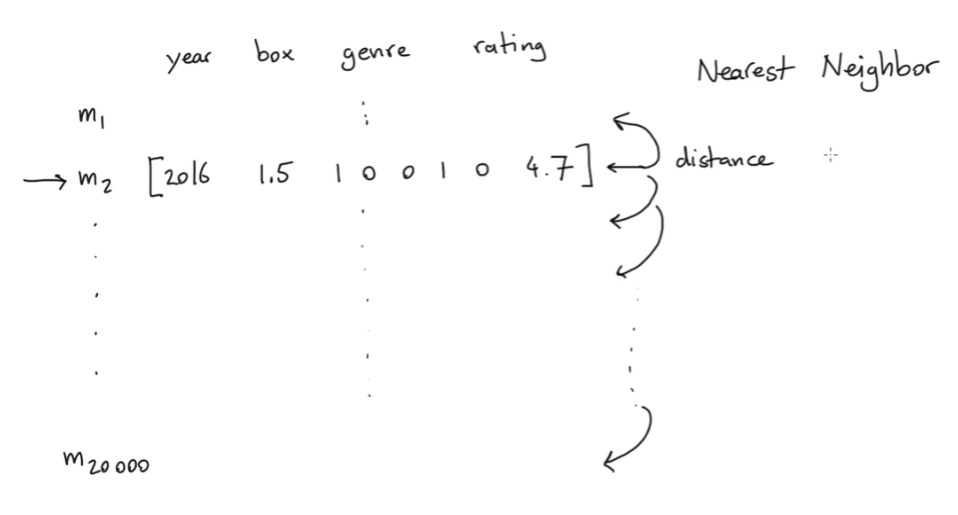 year box genre rating
Nearest Neighbor
m1
m2 [2016 1.5 1 0 0 1 0 4.7] distance
m20000